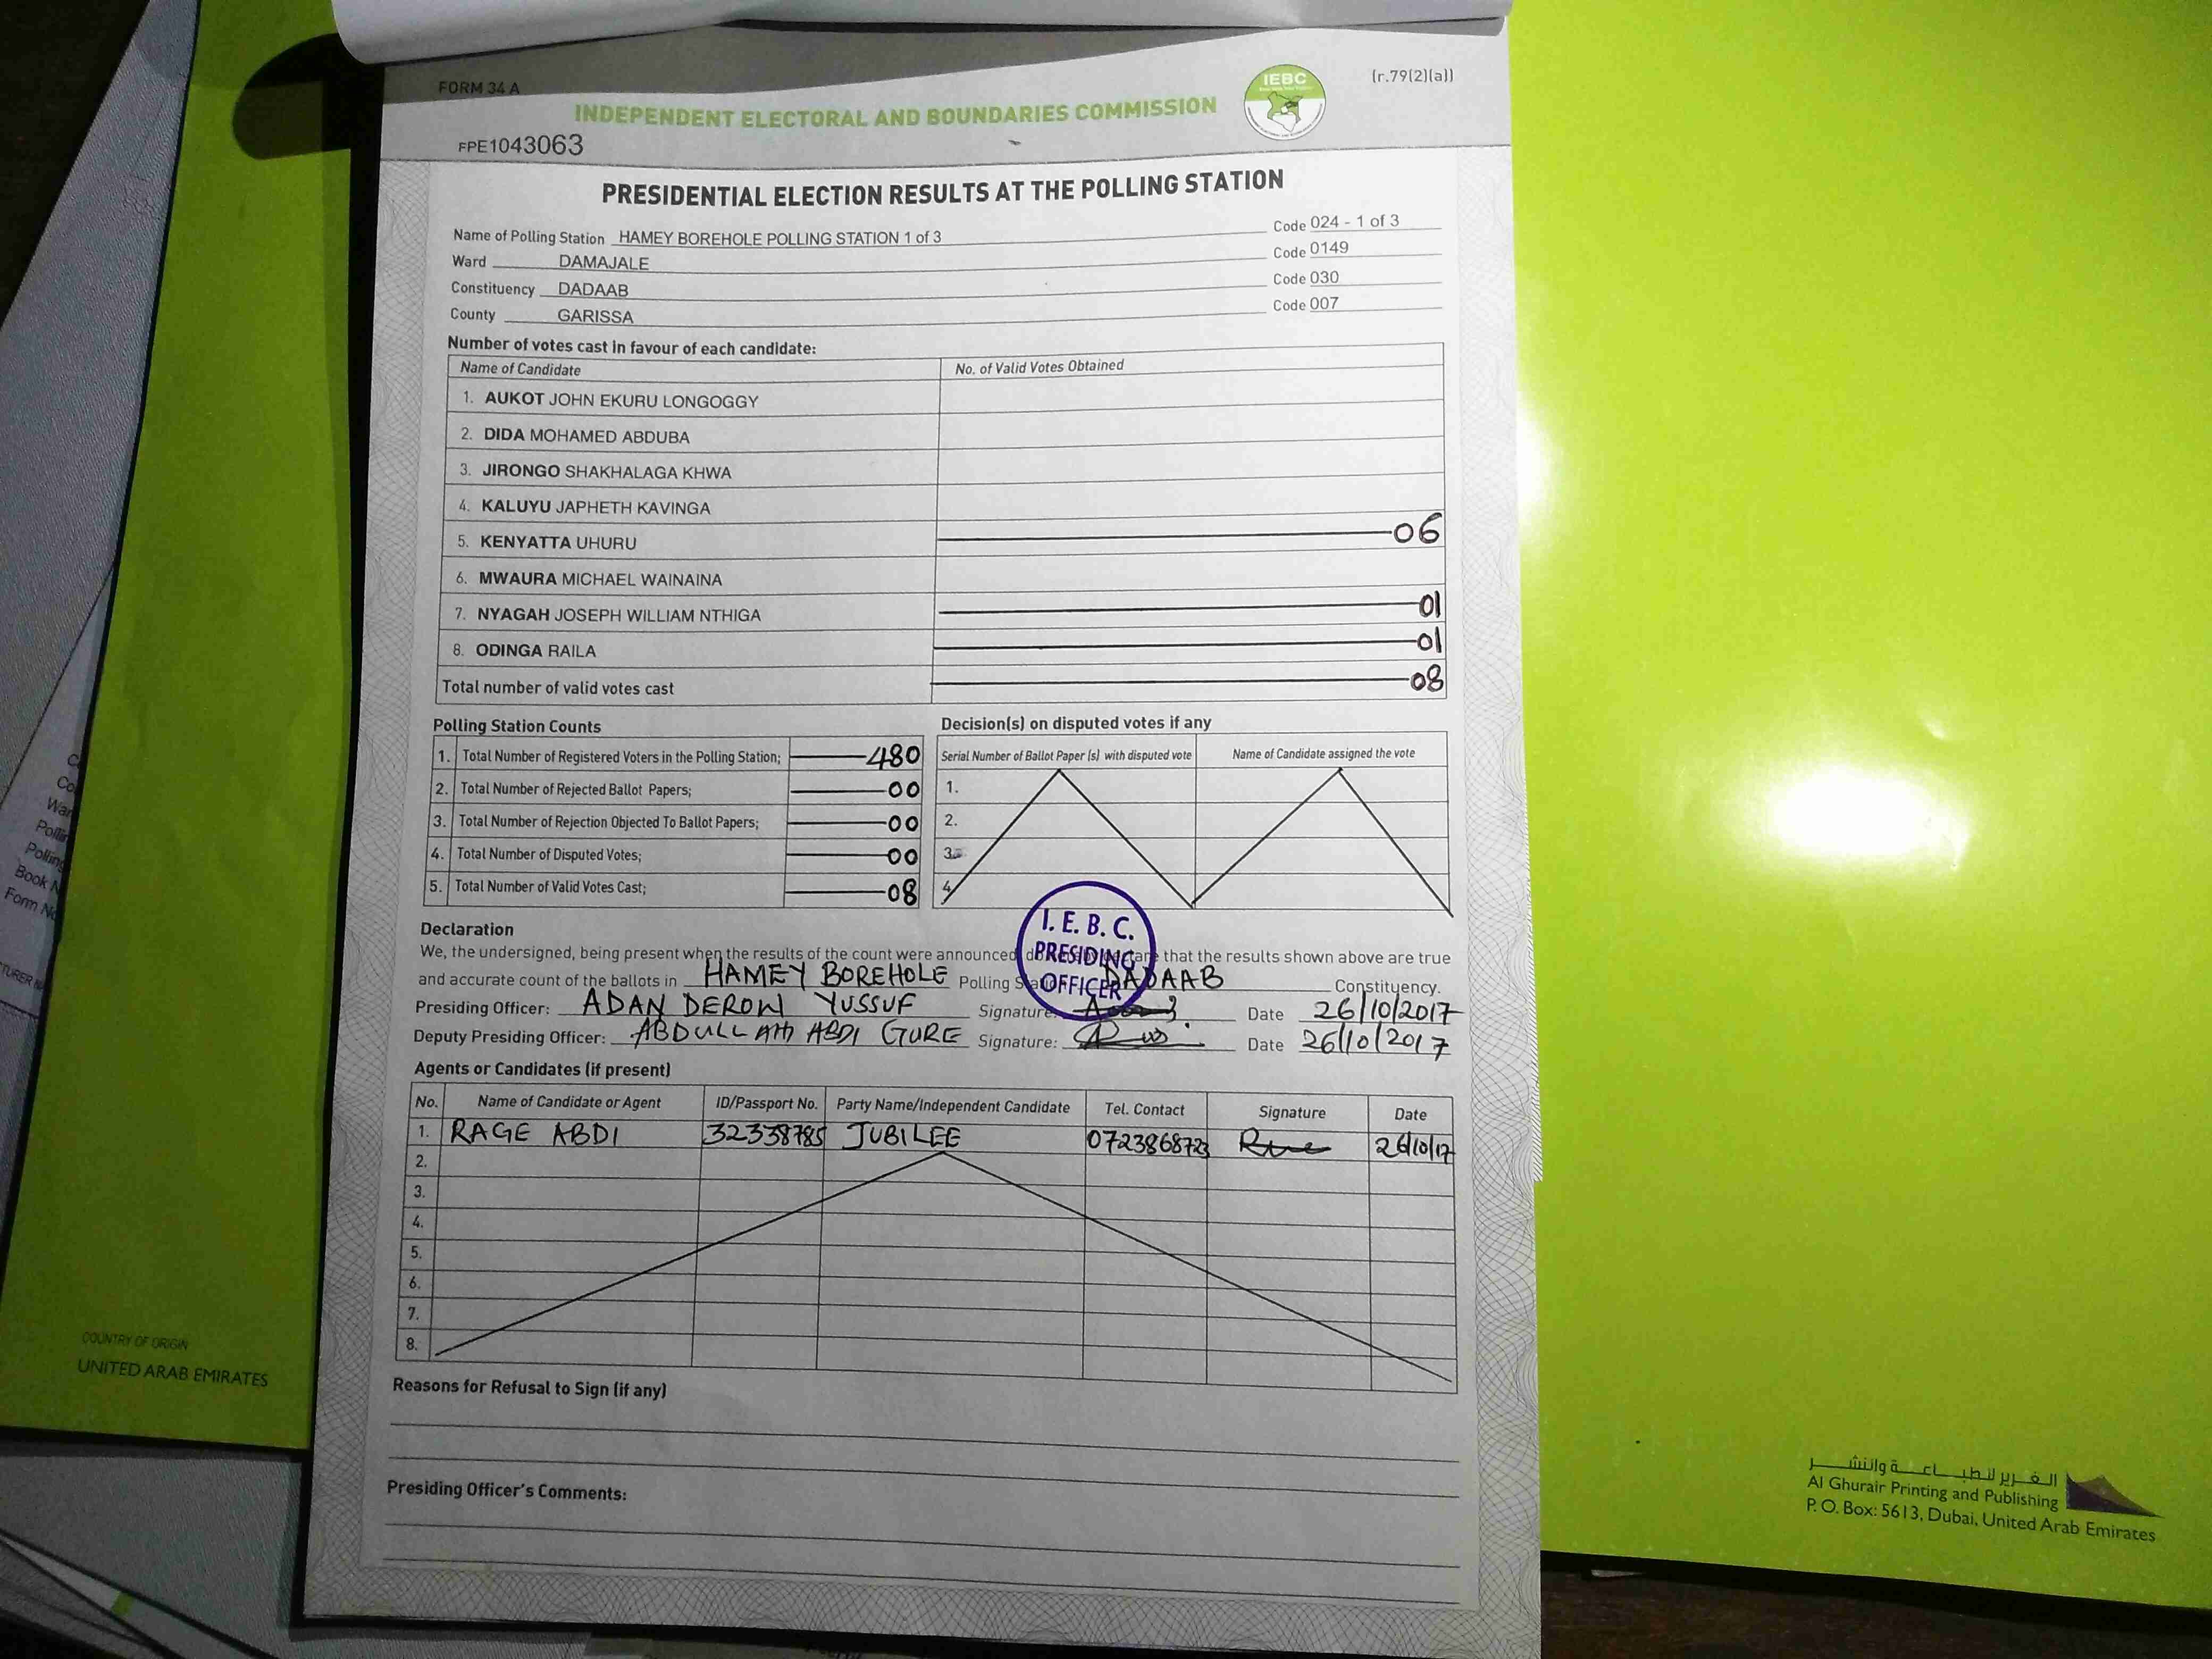 FORM 34 A
(r.79(2)(a))
INDEPENDENT ELECTORAL AND BOUNDARIES COMMISSION
IEBC
FPE1043063
PRESIDENTIAL ELECTION RESULTS AT THE POLLING STATION
Name of Polling Station HAMEY BOREHOLE POLLING STATION 1 of 3 Code 024 - 1 of 3
Ward DAMAJALE Code 0149
Constituency DADAAB Code 030
County GARISSA Code 007
Number of votes cast in favour of each candidate:
Name of Candidate No. of Valid Votes Obtained
1. AUKOT JOHN EKURU LONGOGGY
2. DIDA MOHAMED ABDUBA
3. JIRONGO SHAKHALAGA KHWA
4. KALUYU JAPHETH KAVINGA
5. KENYATTA UHURU 06
6. MWAURA MICHAEL WAINAINA
7. NYAGAH JOSEPH WILLIAM NTHIGA 01
8. ODINGA RAILA 01
Total number of valid votes cast 08
Polling Station Counts
1. Total Number of Registered Voters in the Polling Station; 480
2. Total Number of Rejected Ballot Papers; 00
3. Total Number of Rejection Objected To Ballot Papers; 00
4. Total Number of Disputed Votes; 00
5. Total Number of Valid Votes Cast; 08
Decision(s) on disputed votes if any
Serial Number of Ballot Paper (s) with disputed vote Name of Candidate assigned the vote
1.
2.
3.
4.
I. E. B. C.
PRESIDING
OFFICER
Declaration
We, the undersigned, being present when the results of the count were announced, that the results shown above are true
and accurate count of the ballots in HAMEY BOREHOLE Polling DADAAB Constituency.
Presiding Officer: ADAN DEROW YUSSUF Signature: Date 26/10/2017
Deputy Presiding Officer: ABDULLAHI ABDI GURE Signature: Date 26/10/2017
Agents or Candidates (if present)
No. Name of Candidate or Agent ID/Passport No. Party Name/Independent Candidate Tel. Contact Signature Date
1. RAGE ABDI 32338785 JUBILEE 0723868723 26/10/17
2.
3.
4.
5.
6.
7.
8.
Reasons for Refusal to Sign (if any)
Presiding Officer's Comments:
COUNTRY OF ORIGIN
UNITED ARAB EMIRATES
الغرير للطباعة والنشر
Al Ghurair Printing and Publishing
P. O. Box: 5613, Dubai, United Arab Emirates